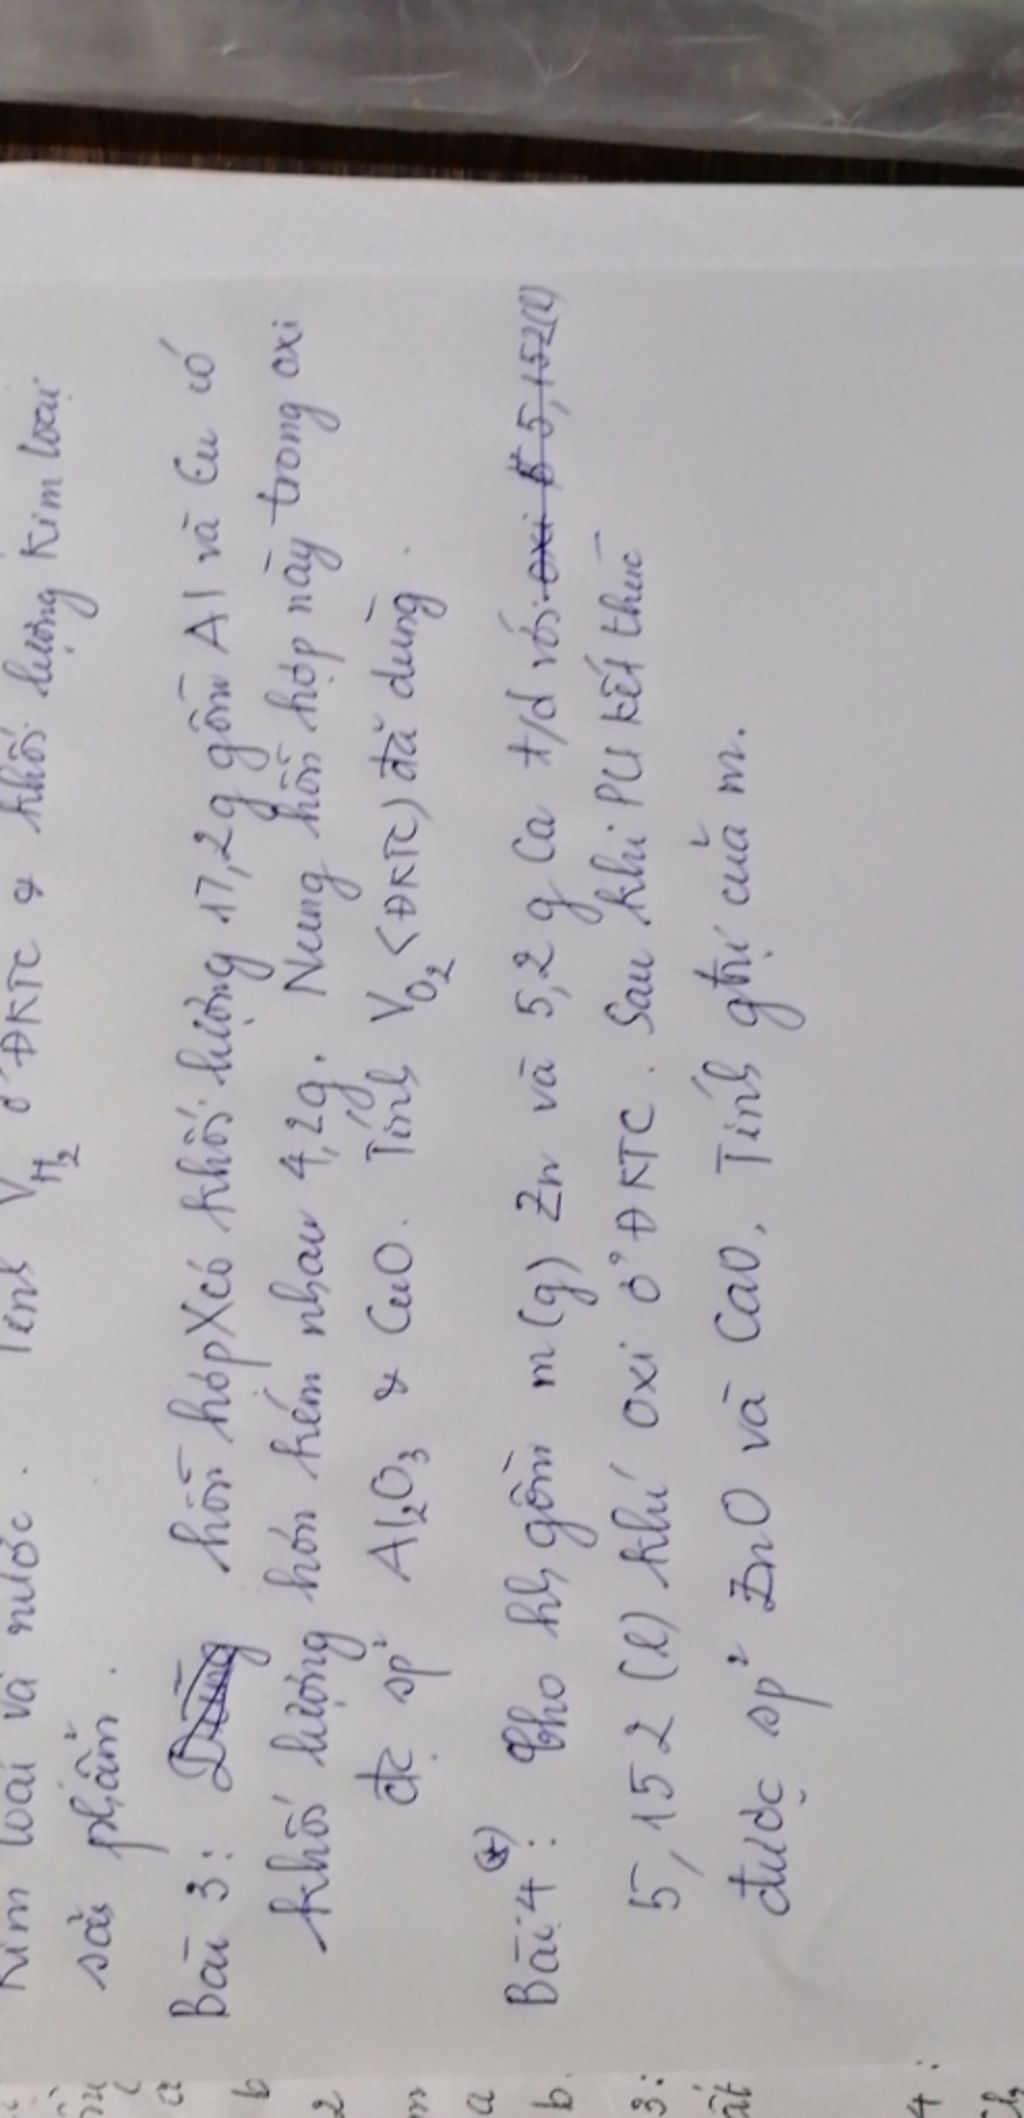 Kim loại và nước. Tính V H₂ ở ĐKTC & khối lượng kim loại
sản phẩm.
Bài 3: hỗn hợp X có khối lượng 17,2g gồm Al và Cu có
khối lượng hơn kém nhau 4,2g. Nung hỗn hợp này trong oxi
đc sp² Al₂O₃ & CuO. Tính V O₂ (ĐKTC) đã dùng.
Bài 4 (*): Cho hh gồm m(g) Zn và 5,2 g Ca t/d với oxi 5,152(l)
5,152 (l) khí oxi ở ĐKTC. Sau khi PƯ kết thúc
được sp² ZnO và CaO. Tính gtrị của m.
a
b
2
m
a
b.
3:
ất
4: